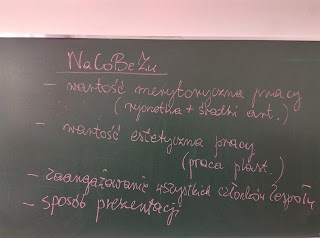 NaCoBeZu
- wartość merytoryczna pracy
( + środki art.)
- wartość estetyczna pracy
(praca plast.)
- zaangażowanie wszystkich członków zespołu
- sposób prezentacji